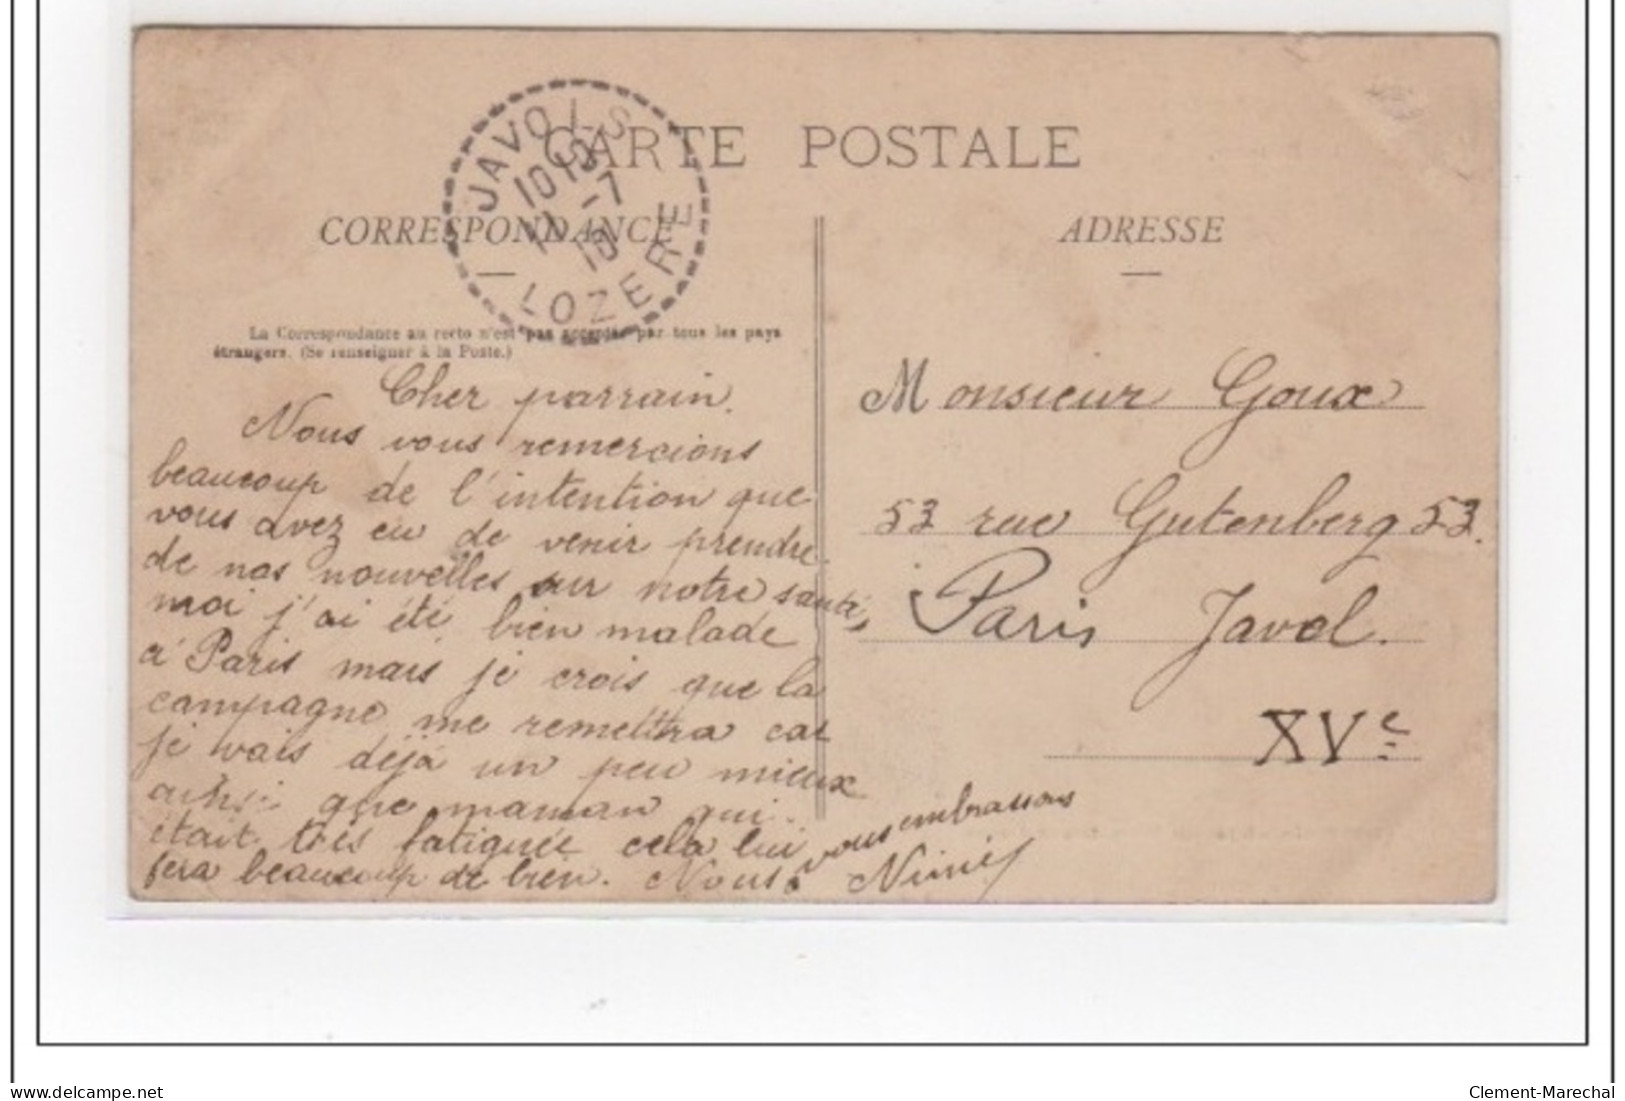 CARTE POSTALE
JAVOLS
LOZERE
CORRESPONDANCE
ADRESSE
La Correspondance au recto n'est pas acceptée par tous les pays
étrangers. (Se renseigner à la Poste.)
Cher parrain.
Nous vous remercions
beaucoup de l'intention que
vous avez eu de venir prendre
de nos nouvelles sur notre santé,
moi j'ai été bien malade
à Paris mais je crois que la
campagne me remettra car
je vais déjà un peu mieux
ainsi que maman qui
était très fatiguée cela lui
fera beaucoup de bien. Nous vous embrassons
Monsieur Goux
53 rue Gutenberg 53.
Paris Javel.
XVe
delcampe.net
Clement-Marechal